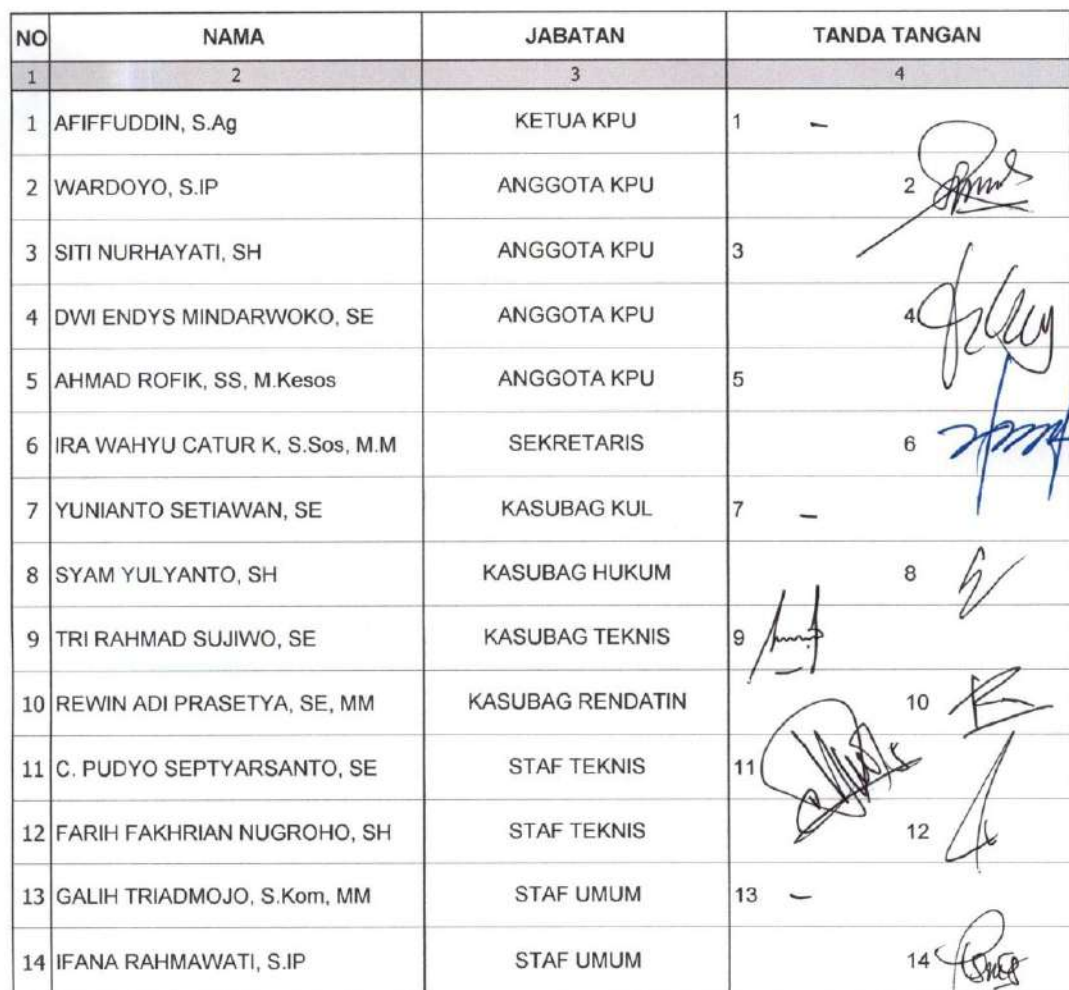 NO NAMA JABATAN TANDA TANGAN
1 2 3 4
1 AFIFFUDDIN, S.Ag KETUA KPU 1 -
2 WARDOYO, S.IP ANGGOTA KPU 2
3 SITI NURHAYATI, SH ANGGOTA KPU 3
4 DWI ENDYS MINDARWOKO, SE ANGGOTA KPU 4
5 AHMAD ROFIK, SS, M.Kesos ANGGOTA KPU 5
6 IRA WAHYU CATUR K, S.Sos, M.M SEKRETARIS 6
7 YUNIANTO SETIAWAN, SE KASUBAG KUL 7 -
8 SYAM YULYANTO, SH KASUBAG HUKUM 8
9 TRI RAHMAD SUJIWO, SE KASUBAG TEKNIS 9
10 REWIN ADI PRASETYA, SE, MM KASUBAG RENDATIN 10
11 C. PUDYO SEPTYARSANTO, SE STAF TEKNIS 11
12 FARIH FAKHRIAN NUGROHO, SH STAF TEKNIS 12
13 GALIH TRIADMOJO, S.Kom, MM STAF UMUM 13 -
14 IFANA RAHMAWATI, S.IP STAF UMUM 14